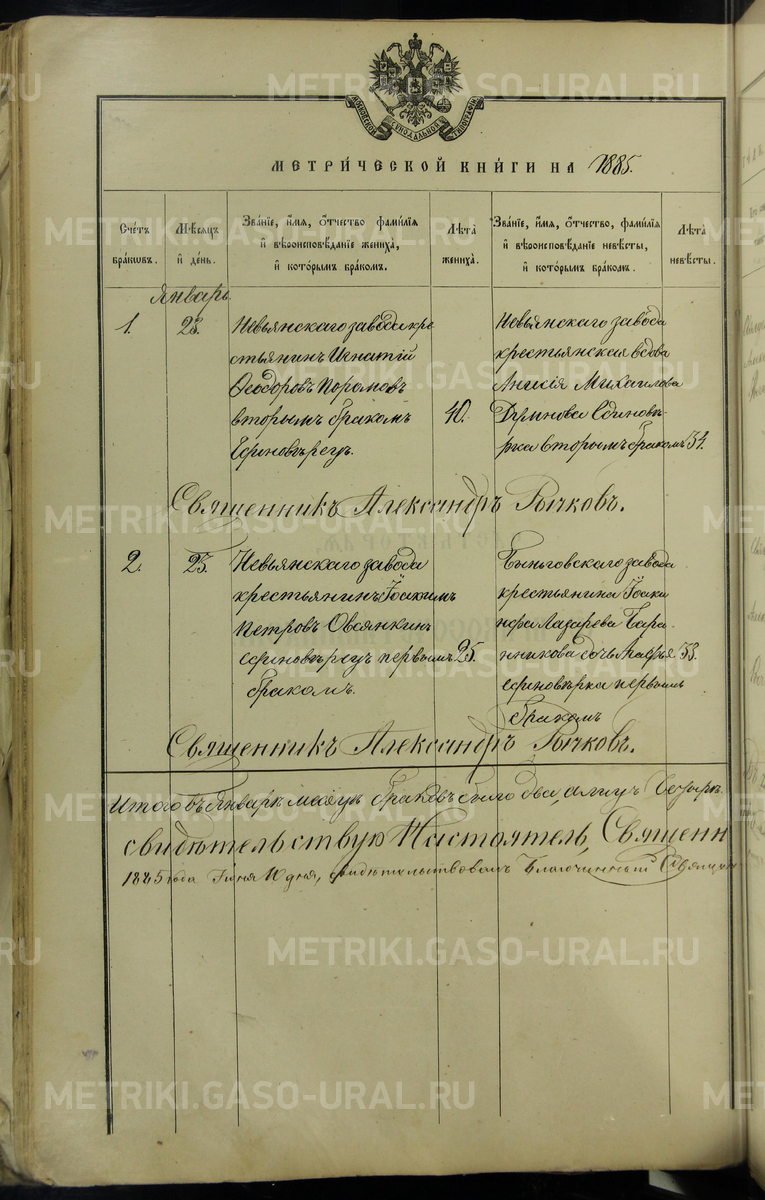 МОСКОВСКОЙ СѴНОДАЛЬНОЙ ТИПОГРАФІИ
МЕТРИ́ЧЕСКОЙ КНИ́ГИ НА 1885.
Сче́тъ бра́ковъ.
Мѣ́сяцъ и́ де́нь.
Зва́нїе, и́мя, ѻ҆́тчество фами́лїя
и҆ вѣроисповѣ́данїе жениха̀,
и҆ кото́рымъ бра́комъ.
Лѣ́та жениха̀.
Зва́нїе, и́мя, ѻ҆́тчество, фами́лїя
и҆ вѣроисповѣ́данїе невѣ́сты,
и҆ кото́рымъ бра́комъ.
Лѣ́та невѣ́сты.
Январь.
1.
23.
Невьянскаго завода кре
стьянинъ Игнатій
Ѳеодоровъ
вторымъ бракомъ
Единовѣрецъ.
40.
Невьянскаго завода
крестьянская вдова
Анисія Михаилова
Единовѣ-
рка вторымъ бракомъ
34.
Священникъ Александръ Бычковъ.
2.
23.
Невьянскаго завода
крестьянинъ Іоакимъ
Петровъ Овсянкинъ
единовѣрецъ первымъ
бракомъ.
25.
Быньговскаго завода
крестьянина Іоаки
нфа Лазарева Бара-
нникова дочь Марѳа
единовѣрка первымъ
бракомъ
Священникъ Александръ Бычковъ.
Итого въ Январѣ мѣсяцѣ браковъ было два, а лицъ четыре.
свидѣтельствую Настоятель, Священн
1885 года дня, свидѣтельствовалъ Благочинный Священ
METRIKI.GASO-URAL.RU